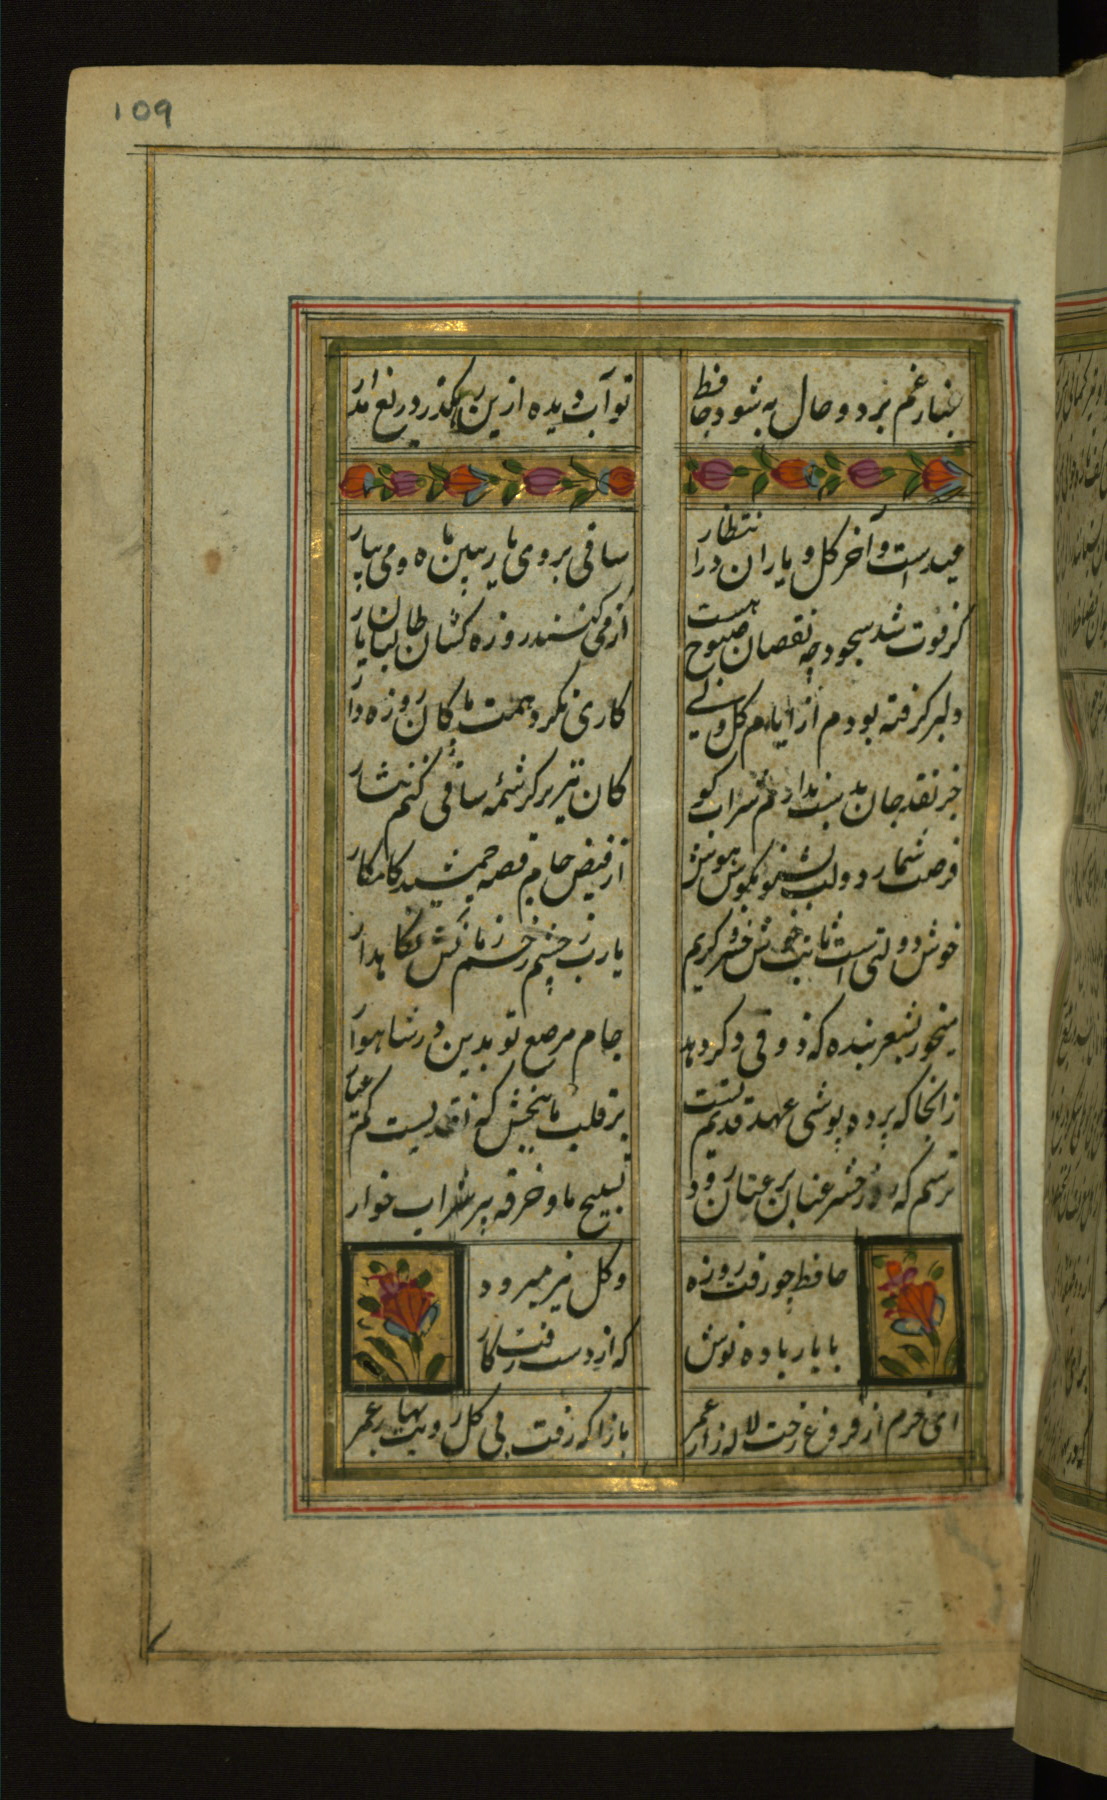 109
غبار غم برود حال به شود حافظ
تو آب دیده ازین رهگذر دریغ مدار
عیدست و آخر گل و یاران در انتظار
ساقی بروی یار ببین ماه و می بیار
گر فوت شد سحور چه نقصان صبوح هست
از می کنند روزه گشان طالبان یار
دل برگرفته بودم از ایام گل ولی
کاری نکرد همت پاکان روزه دار
جز نقد جان بدست ندارم شراب کو
کان نیز بر کرشمه ساقی کنم نثار
از فیض جام قصه جمشید کامکار
خوش دولتی است خوش خسرو کریم
یارب ز چشم زخم زمانش نگاهدار
میخور بشعر بنده که ذوقی دگر دهد
جام مرصع تو بدین در شاهوار
زانجا که پرده پوشی عهد قدیم تست
بر قلب ما ببخش که نقدیست کم عیار
ترسم که روز حشر عنان بر عنان رود
تسبیح ما و خرقه پیر شراب خوار
حافظ چو رفت روزه
و گل نیز میرود
با یار باده نوش
که از دست رفت کار
ای خرم از فروغ رخت لاله زار عمر
باز آ که رفت بی گل رویت بهار عمر